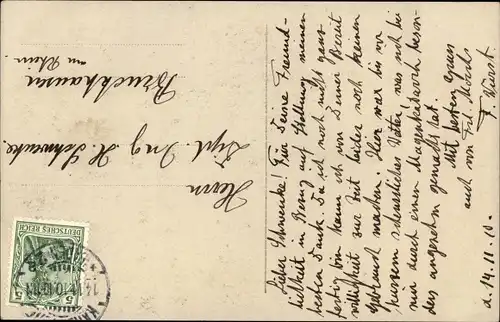 Herrn
Dipl. Ing. H. Schwenke,
Bruckhausen
am Rhein.
Lieber Schwenke! Für Deine Freund-
lichkeit in Bezug auf Stellung meinen
besten Dank. Da ich noch nicht ganz
fertig bin kann ich von Deiner Bereit
willigkeit zur Zeit leider noch keinen
Gebrauch machen. Hier war bis vor
kurzem scheussliches Wetter! was noch bei
mir durch einen Magenkatarrh beson-
ders angenehm gemacht hat.
Mit besten Gruss
auch von
d. 14.11.10.
DEUTSCHES REICH
5 5